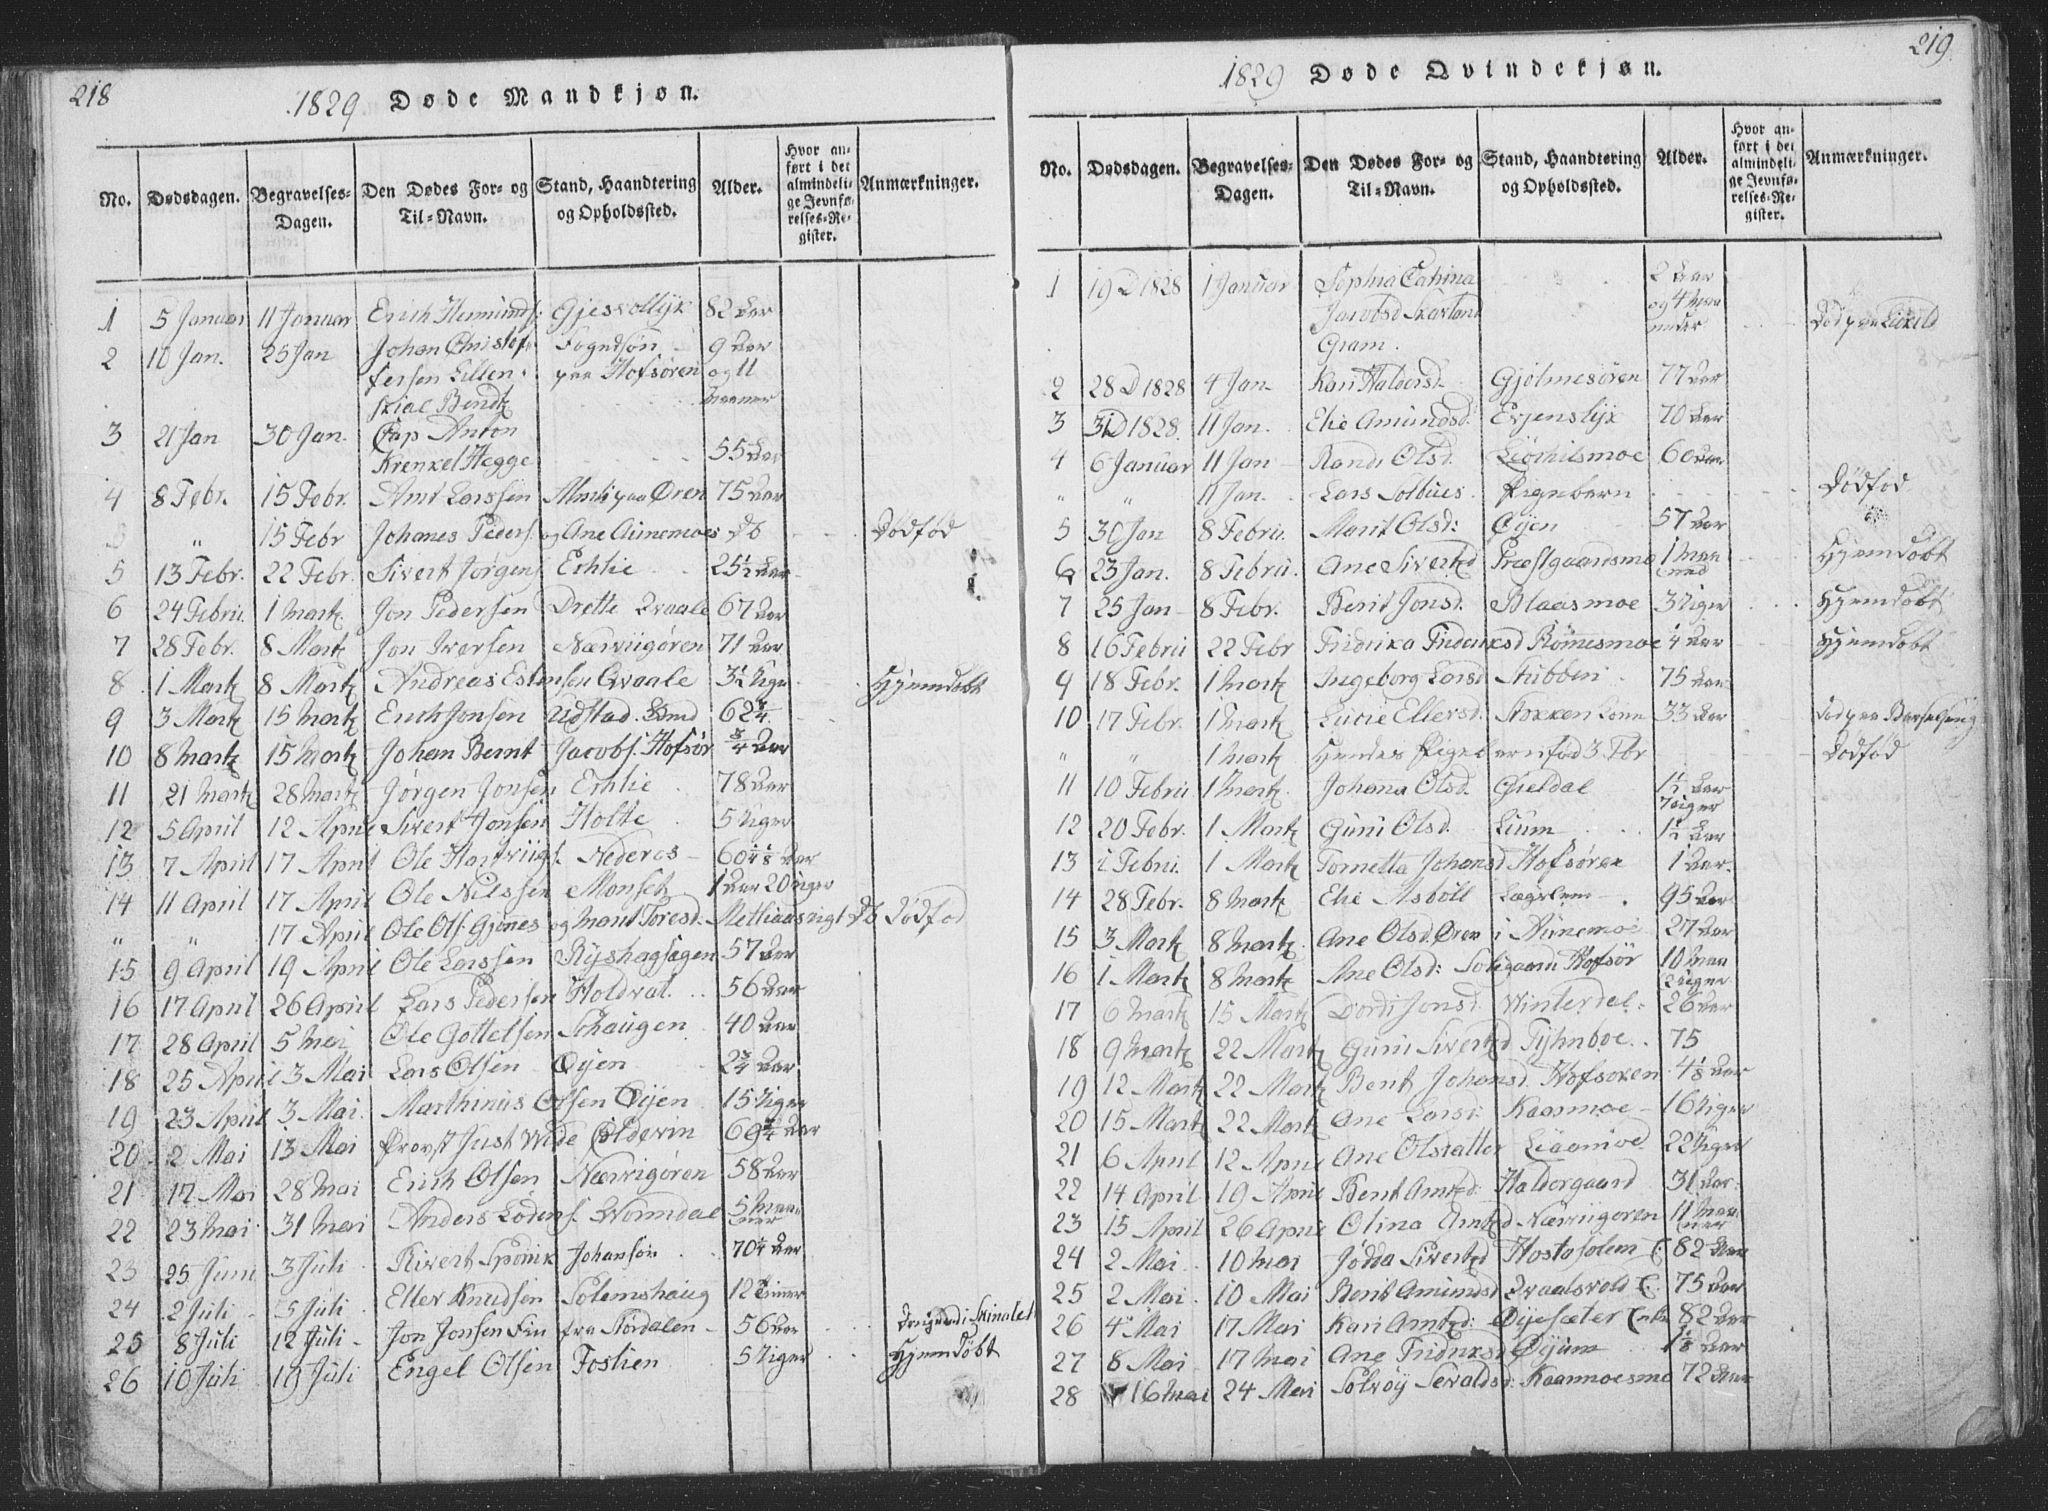 218
1829 Døde Mandkjøn.
No. Dødsdagen. Begravelses-Dagen. Den Dødes For- og Til-Navn. Stand, Haandtering og Opholdssted. Alder. Hvor anført i det almindelige Jevnførelses-Register. Anmærkninger.
1 5 Januar 11 Januar Erich Gjesvollyk 82 Aar
2 10 Jan. 25 Jan Johan Christof- Fogedsøn 9 Aar
fersen Lillen- paa Hofsøren og 11
skial Bendz
3 21 Jan 30 Jan. Cap Anton
Krenkel Hegge 55 Aar
4 8 Febr. 15 Febr. Arnt Larssen paa Øren 75 Aar
" 15 Febr Johanes Peders. og Ane Aunemoes Db Dødfød
5 13 Febr. 22 Febr. Sivert Jørgens. Erhlie 25½ Aar
6 24 Febru. 1 Martz Jon Pedersen Drette Qvaale 67 Aar
7 28 Febr. 8 Martz Jon Iversen Nærviigøren 71 Aar
8 1 Martz 8 Martz Andreas Estensen Qvaale 3½ Uge Hjemdøbt
9 3 Martz 15 Martz Erich Jonsen Udstad 62¾
10 8 Martz 15 Martz Johan Bernt Jacobs. Hofsør ¾ Aar
11 21 Martz 28 Martz Jørgen Jonsen Erhlie 78 Aar
12 5 April 12 April Sivert Jonsen Holte 5 Uger
13 7 April 17 April Ole Nederos 60 Aar
14 11 April 17 April Ole Nilssen Monsetz 1 Aar 20 Uger
" " 17 April Ole Ols. Gjønes og Marit Toresd. Db Dødfød
15 9 April 19 April Ole Larssen Ryshagsagen 57 Aar
16 17 April 26 April Lars Pedersen Holdval 56 Aar
17 28 April 5 Mai Ole Gottelsen Schaugen 40 Aar
18 25 April 3 Mai Lars Olsen Øyen 2¾ Aar
19 23 April 3 Mai Marthinus Olsen Øyen 15 Uger
20 2 Mai 13 Mai Provst Just Wide Coldevin 69¾ Aar
21 17 Mai 28 Mai Erich Olsen Nærvigøren 58 Aar
22 23 Mai 31 Mai Anders Wormdal 5 Maaneder
23 25 Juni 3 Juli Johansøn 70¼ Aar
24 2 Juli 5 Juli Eller Knudsen Solemshaug 12 Timer
25 8 Juli 12 Juli Jon Jonsen Fin fra Stördalen 56 Aar
26 10 Juli 19 Juli Engel Olsen Foslien 5 Uger Hjemdøbt
219
1829 Døde Qvindekjøn.
No. Dødsdagen. Begravelses-Dagen. Den Dødes For- og Til-Navn. Stand, Haandtering og Opholdssted. Alder. Hvor anført i det almindelige Jevnførelses-Register. Anmærkninger.
1 19 D 1828 1 Januar Sophia Catrina 2 Aar
og 4 Maa
Gram.
2 28 D 1828 4 Jan. Kari Haldorsd. Gjølmesøren 77 Aar
3 31 D 1828. 11 Jan. Elie Amundsd. Evjenslyk 70 Aar
4 6 Januar 11 Jan Randi Olsd. 60 Aar
" " 11 Jan. Lars Solbues Pigebarn Dødfød
5 30 Jan 8 Febru. Marit Olsd: Øyen 57 Aar
6 23 Jan. 8 Febru. Ane Sivertsd Præstgaardsmo 1 Maaned Hjemdøbt
7 25 Jan 8 Febr. Berit Jonsd. Blaasmoe 3 Uger Hjemdøbt
8 16 Febru 22 Febr Fridrika Fridriksd Rømesmoe ¼ Aar Hjemdøbt
9 18 Febr. 1 Martz Ingeborg Larsd Stubben 75 Aar
10 17 Febr. 1 Martz Lucie Ellersd. Stokken 33 Aar Død paa Barselseng
" " 1 Martz Hendes Pigebarn fød 3. Fbr Dødfød
11 10 Febru 1 Martz Johanna Olsd. Gieldal 1½ Aar
7 Uger
12 20 Febr. 1 Martz Guru Olsd. Lium 1½ Aar
13 2 Febru. 1 Martz Tornetta Johansd Hofsøren 1 Aar.
14 28 Febr. 8 Martz Elie Asboll 95 Aar
15 3 Martz 8 Martz. Ane Olsd. Øren i Aunemoe 27 Aar
16 1 Martz 8 Martz Ane Olsd: Hofsør 10 Maa
2 Uger
17 6 Martz 15 Martz Dordi Jonsd. Winterdal 26 Aar
18 9 Martz 22 Martz Guru Sivertsd Tyhnboe 75
19 12 Martz 22 Martz Berit Johansd. Hofsøren 4⅛ Aar
20 15 Martz 22 Martz Ane Larsd: Kaarmoe 16 Uger
21 6 April 12 April Ane Olsdatter Liaamoe 22 Uger
22 14 April 19 April Berit Arntsd: Haldorgaard 31 Aar
23 15 April 26 April Olina Arntsd Nærviigøren 11 Maaneder
24 2 Mai 10 Mai Jødda Sivertsd Hostosolem 82 Aar
25 2 Mai 10 Mai Berit Amundsd Qvaalsvold 75 Aar
26 4 Mai 17 Mai Kari Arntsd: Øyesæter Enke 82 Aar
27 8 Mai 17 Mai Ane Fridriksd Øyum 1⅛ Aar
28 16 Mai 24 Mai Solvøy Sevaldsd: Kaarmoesmo 72 Aar